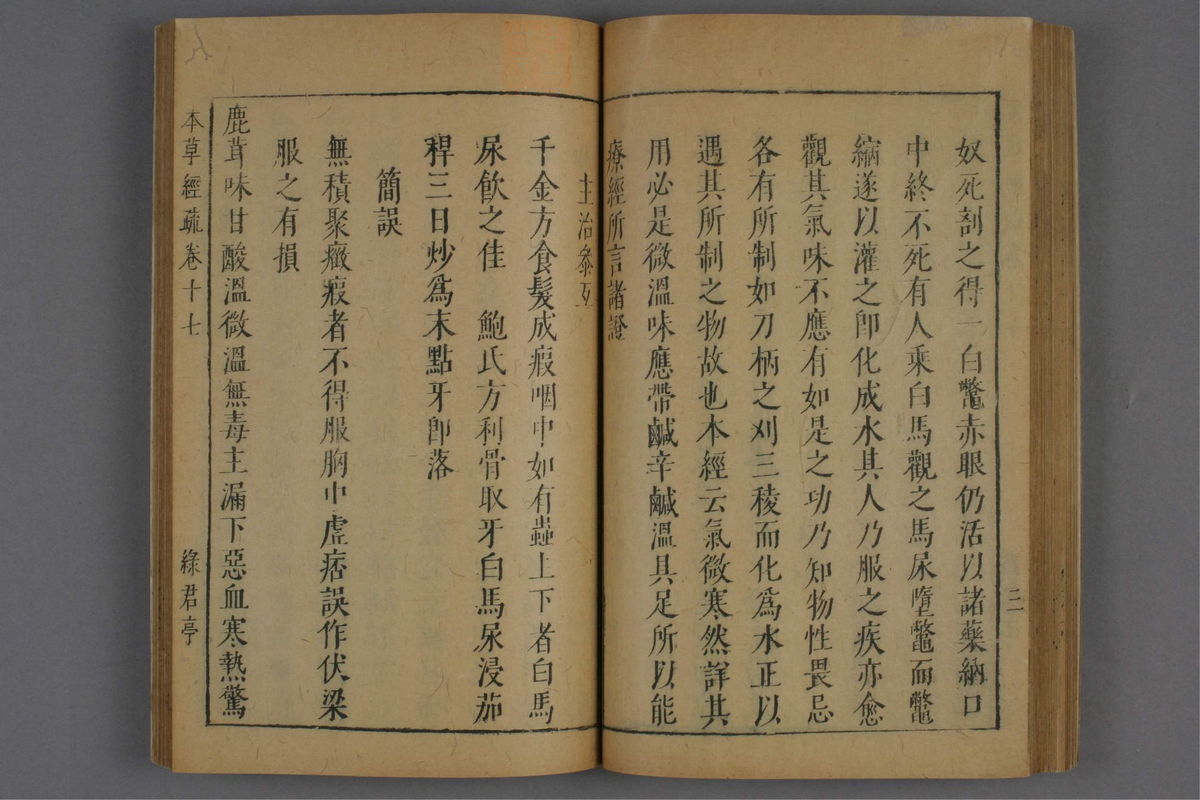 奴死剖之得一白鼈赤眼仍活以諸藥納口
中終不死有人乘白馬觀之馬尿墮鼈而鼈
縮遂以灌之卽化成水其人乃服之疾亦愈
觀其氣味不應有如是之功乃知物性畏忌
各有所制如刀柄之刈三稜而化爲水正以
遇其所制之物故也本經云氣微寒然詳其
用必是微溫味應帶鹹辛鹹溫具足所以能
療經所言諸證
主治叅互
千金方食髮成瘕咽中如有蟲上下者白馬
尿飮之佳　鮑氏方利骨取牙白馬尿浸茄
稈三日炒爲末點牙卽落
簡誤
無積聚癥瘕者不得服胸中虛痞誤作伏梁
服之有損
鹿茸味甘酸溫微溫無毒主漏下惡血寒熱驚
本草經疏卷十七
綠君亭